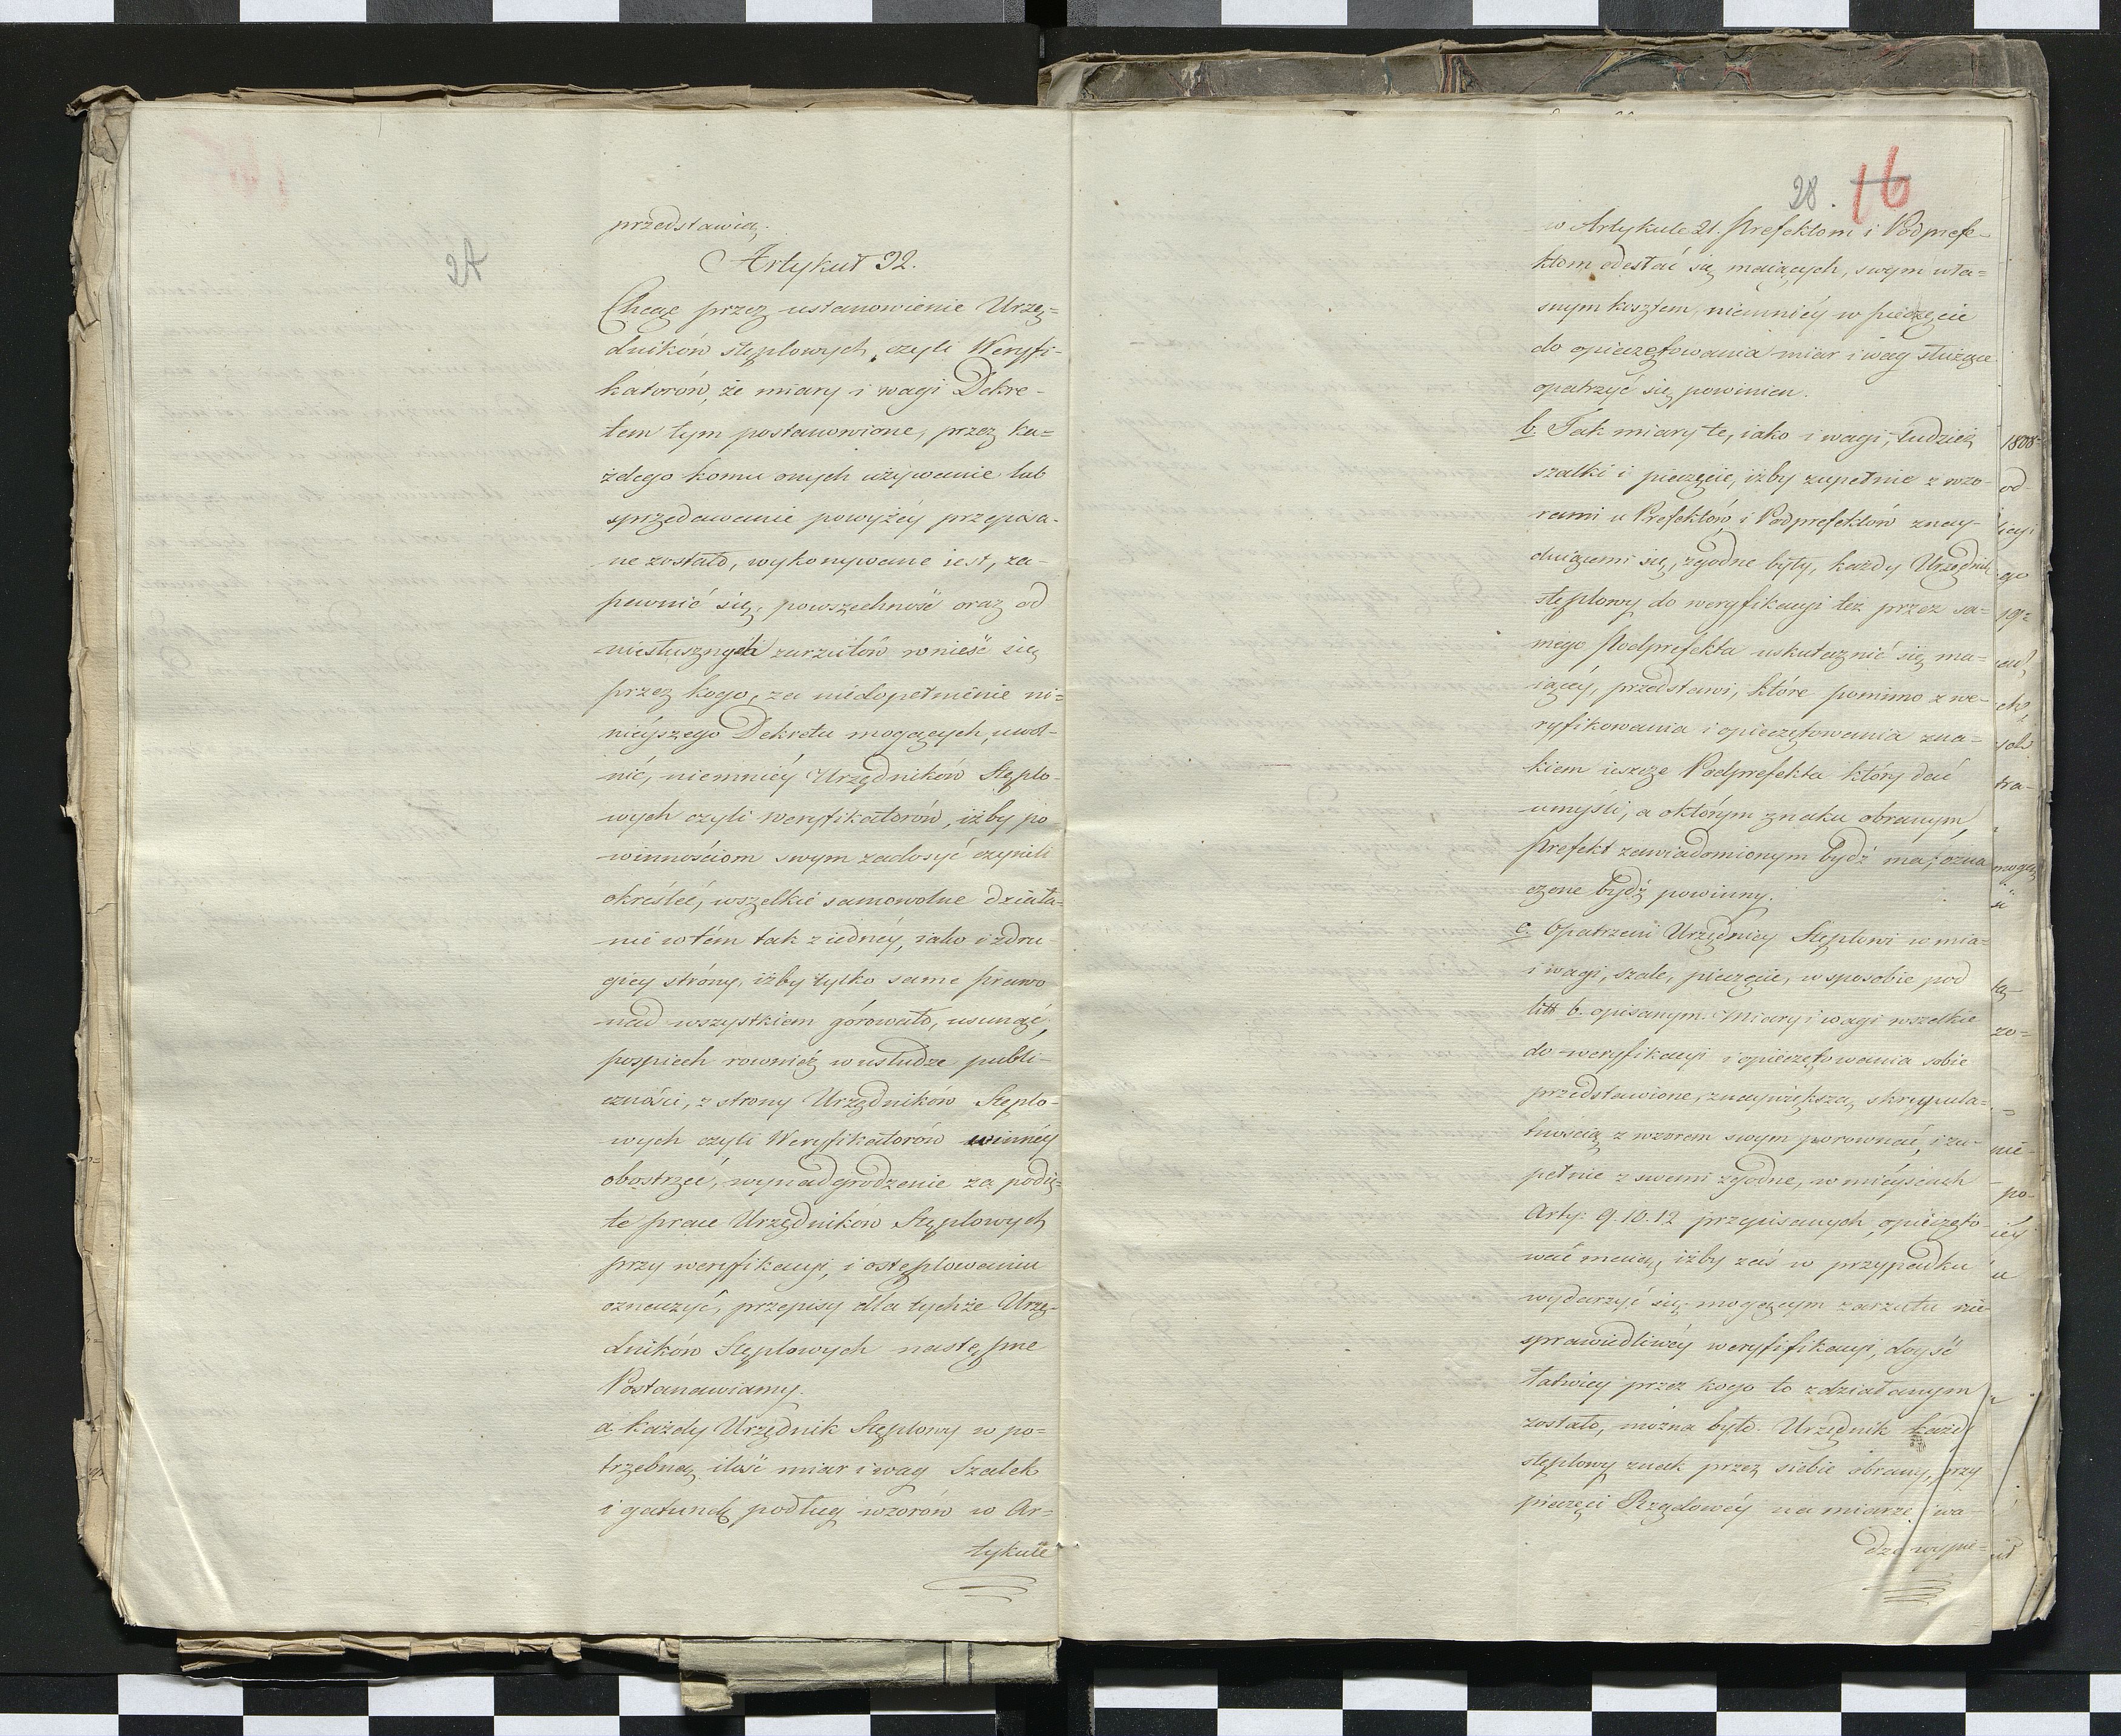 27
przedstawią.
Artykuł 32.
Chcąc przez ustanowienie Urzę=
dników stęplowych, czyli Weryfi-
katorów, że miary i wagi Dekre-
tem tym postanowione, przez ka=
żdego komu onych używanie lub
sprzedawanie powyżéy przepisa-
ne zostało, wykonywane iest, za-
pewnić się, powszechność oraz od
niesłusznych zarzutów wnieść się
przez kogo, za niedopełnienie ni=
nieyszego Dekretu mogących, uwol-
nić, niemniéy Urzędników Stęplo-
wych czyli Weryfikatorów, iżby po
winnościom swym zadosyć czynili
określić, wszelkie samowolne działa-
nie w tém tak z iednéy, iako i z dru-
giey stróny, iżby tylko same prawo
nad wszystkiem górowało, usunąć,
pospiech rownież w usłudze publi-
czności, z strony Urzędników Stęplo-
wych czyli Weryfikatorów winnéy
obostrzyć, wynadgrodzenie za podię=
te prace Urzędników Stęplowych
przy weryfikacyi, i ostęplowaniu
oznaczyć, przepisy dla tychże Urzę-
dników Stęplowych następne
Postanawiamy.
a. każdy Urzędnik Stęplowy w po=
trzebną ilość miar i wag Szalek
i gatunek podług wzorów w Ar=
tykule
28. 16
w Artykule 21 Prefektom i Podprefe-
ktom odesłać się maiących, swym wła=
snym kosztem, niemniéy w pieczęcie
do opieczętowania miar i wag służące
opatrzyć się powinien.
b. Tak miary te, iako i wagi, tudzież
szalki i pieczęcie, iżby zupełnie z wzo-
rami u Prefektów i Podprefektów znay-
duiącemi się, zgodne były, każdy Urzędnik
stęplowy do weryfikacyi téż przez sa=
mego Podprefekta uskutecznić się ma=
iącéy, przedstawi, które pomimo zwe-
ryfikowania i opieczętowania zna=
kiem ieszcze Podprefekta który dać
umyśli, a o którym znaku obranym
Prefekt zawiadomionym bydź ma, ozna
czone bydź powinny.
c. Opatrzeni Urzędnicy Stęplowi w mia=
i wagi, szale, pieczęcie, w sposobie pod
litt b. opisanym. Miary i wagi wszelkie
do weryfikacyi i opieczętowania sobie
przedstawione, z naywiększą skrupula=
tnością z wzorem swym porownać, i zu-
pełnie z swemi zgodne, w mieyscach
Arty: 9.10.12 przepisanych, opieczęto
wać maią, iżby zaś w przypadku
wydarzyć się mogącym zarzutu nie-
sprawiedliwéy weryfifikacyi, doyść
łatwiey przez kogo to zdziałanym
zostało, można było. Urzędnik każdy
stęplowy znak przez siebie obrany, przy
pieczęci Rządowéy na miarze i wa-
dze wypie=